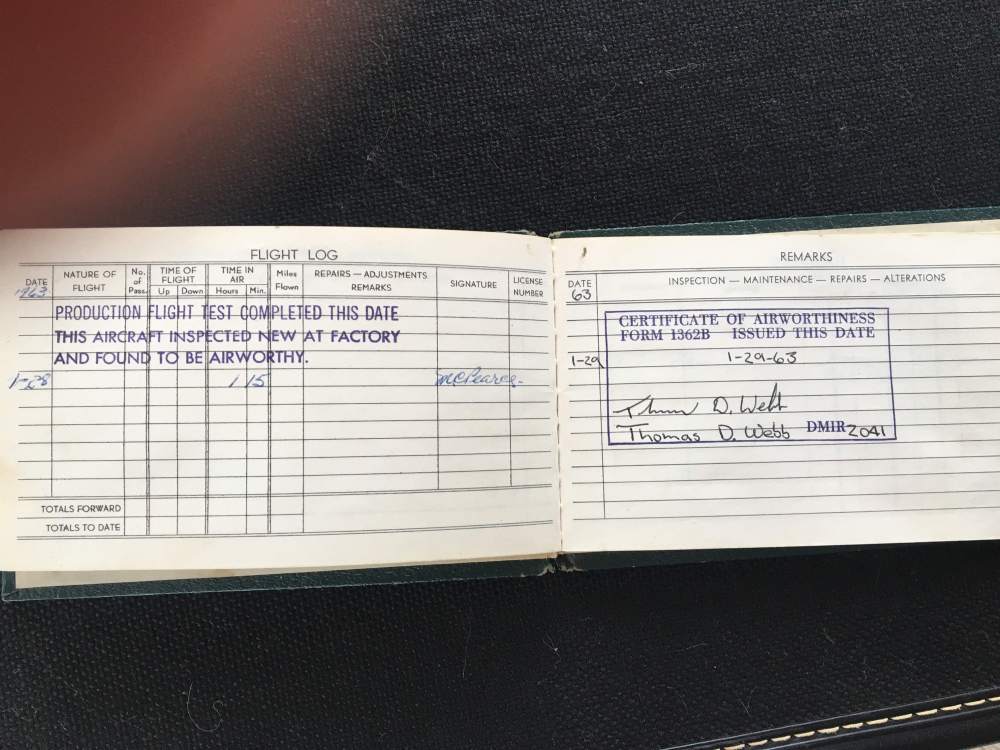 FLIGHT LOG
DATE
1963
NATURE OF
FLIGHT
No.
of
Pass.
TIME OF
FLIGHT
Up Down
TIME IN
AIR
Hours Min.
Miles
Flown
REPAIRS — ADJUSTMENTS
REMARKS
SIGNATURE
LICENSE
NUMBER
PRODUCTION FLIGHT TEST COMPLETED THIS DATE
THIS AIRCRAFT INSPECTED NEW AT FACTORY
AND FOUND TO BE AIRWORTHY.
1-28 1 15 McPearce
TOTALS FORWARD
TOTALS TO DATE
REMARKS
DATE
63
INSPECTION — MAINTENANCE — REPAIRS — ALTERATIONS
CERTIFICATE OF AIRWORTHINESS
FORM 1362B ISSUED THIS DATE
1-29 1-29-63
Thomas D. Webb
Thomas D. Webb DMIR 2041